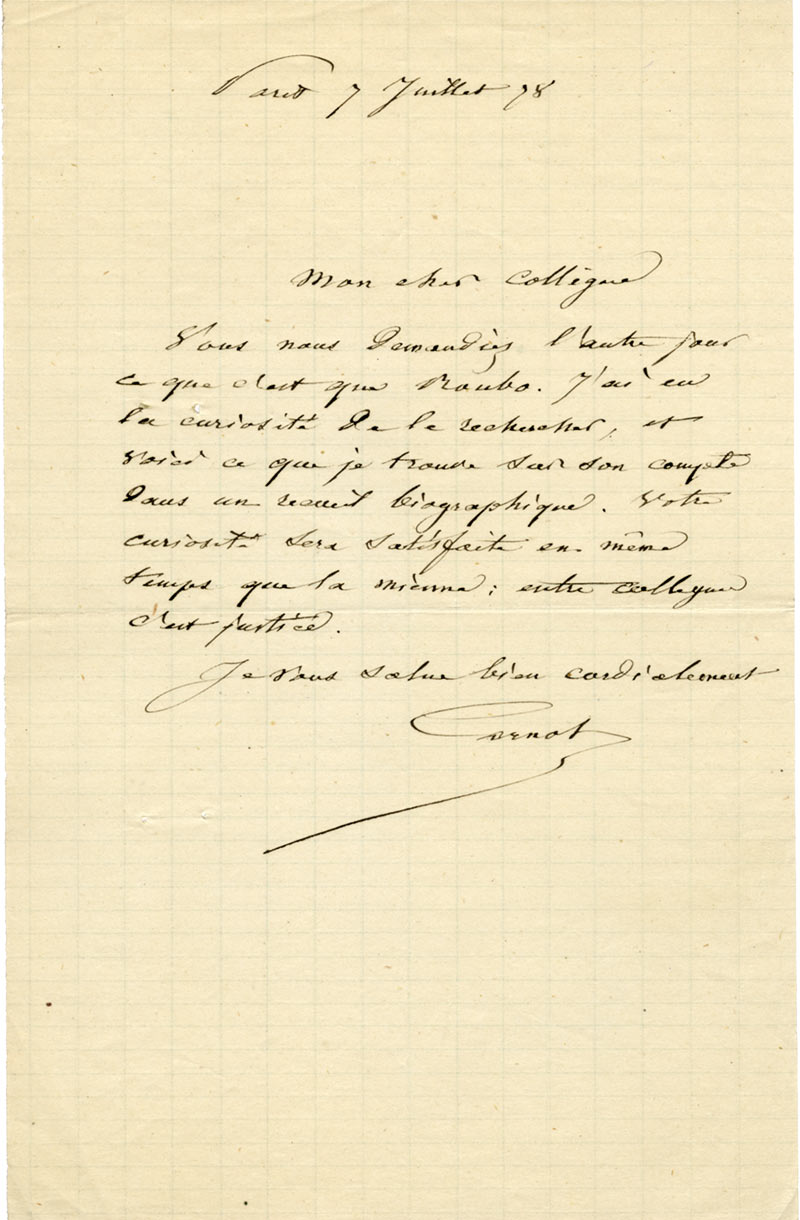 Paris 7 Juillet 78
Mon cher collègue
Vous nous demandiez l'autre jour
ce que c'est que Roubo. J'ai eu
la curiosité de le rechercher, et
voici ce que je trouve sur son compte
dans un recueil biographique. Votre
curiosité sera satisfaite en même
temps que la mienne; entre collègue
c'est justice.
Je vous salue bien cordialement
Carnot